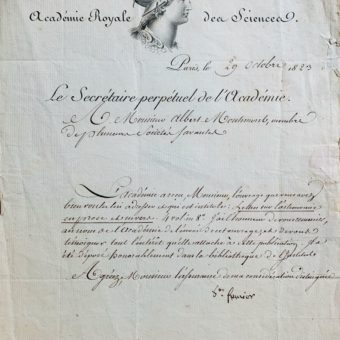 Académie Royale des Sciences.
Paris, le 29 Octobre 1823
Le Secrétaire perpétuel de l'Académie.
A Monsieur Albert Montémont, membre
de plusieurs Sociétés savantes
L'Académie a reçu, Monsieur, l'ouvrage que vous avez
bien voulu lui adresser et qui est intitulé : Lettres sur l'astronomie
en prose et en vers 4 vol in 8º. J'ai l'honneur de vous remercier,
au nom de l'Académie de l'envoi de cet ouvrage, et de vous
témoigner tout l'intérêt qu'elle attache à cette publication. Il a
été déposé honorablement dans la bibliothèque de l'Institut.
Agréez, Monsieur l'assurance de ma considération distinguée
Fourier